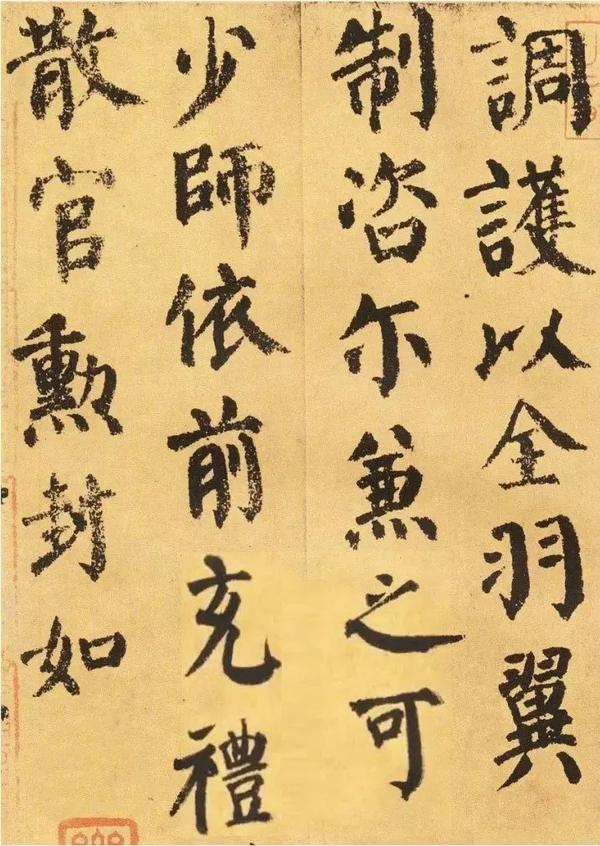 調護以全羽翼
制咨尓兼之可
少師依前充禮
散官勲封如